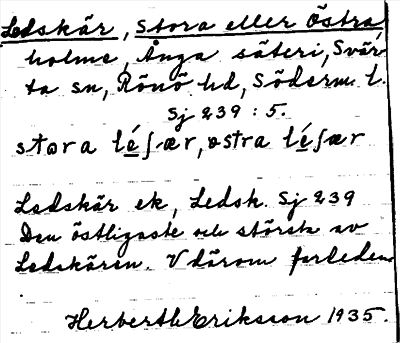 Ledskär, Stora eller Östra
holme, Ånga säteri, Svär-
ta sn, Rönö hd, Söderm. l.
Sj 239 : 5.
stora lé̱ʃær, østra lé̱ʃær
Ledskär ek, Ledsk. Sj 239
Den östligaste och största av
Ledskären. V därom farleden
Herbert Eriksson 1935.